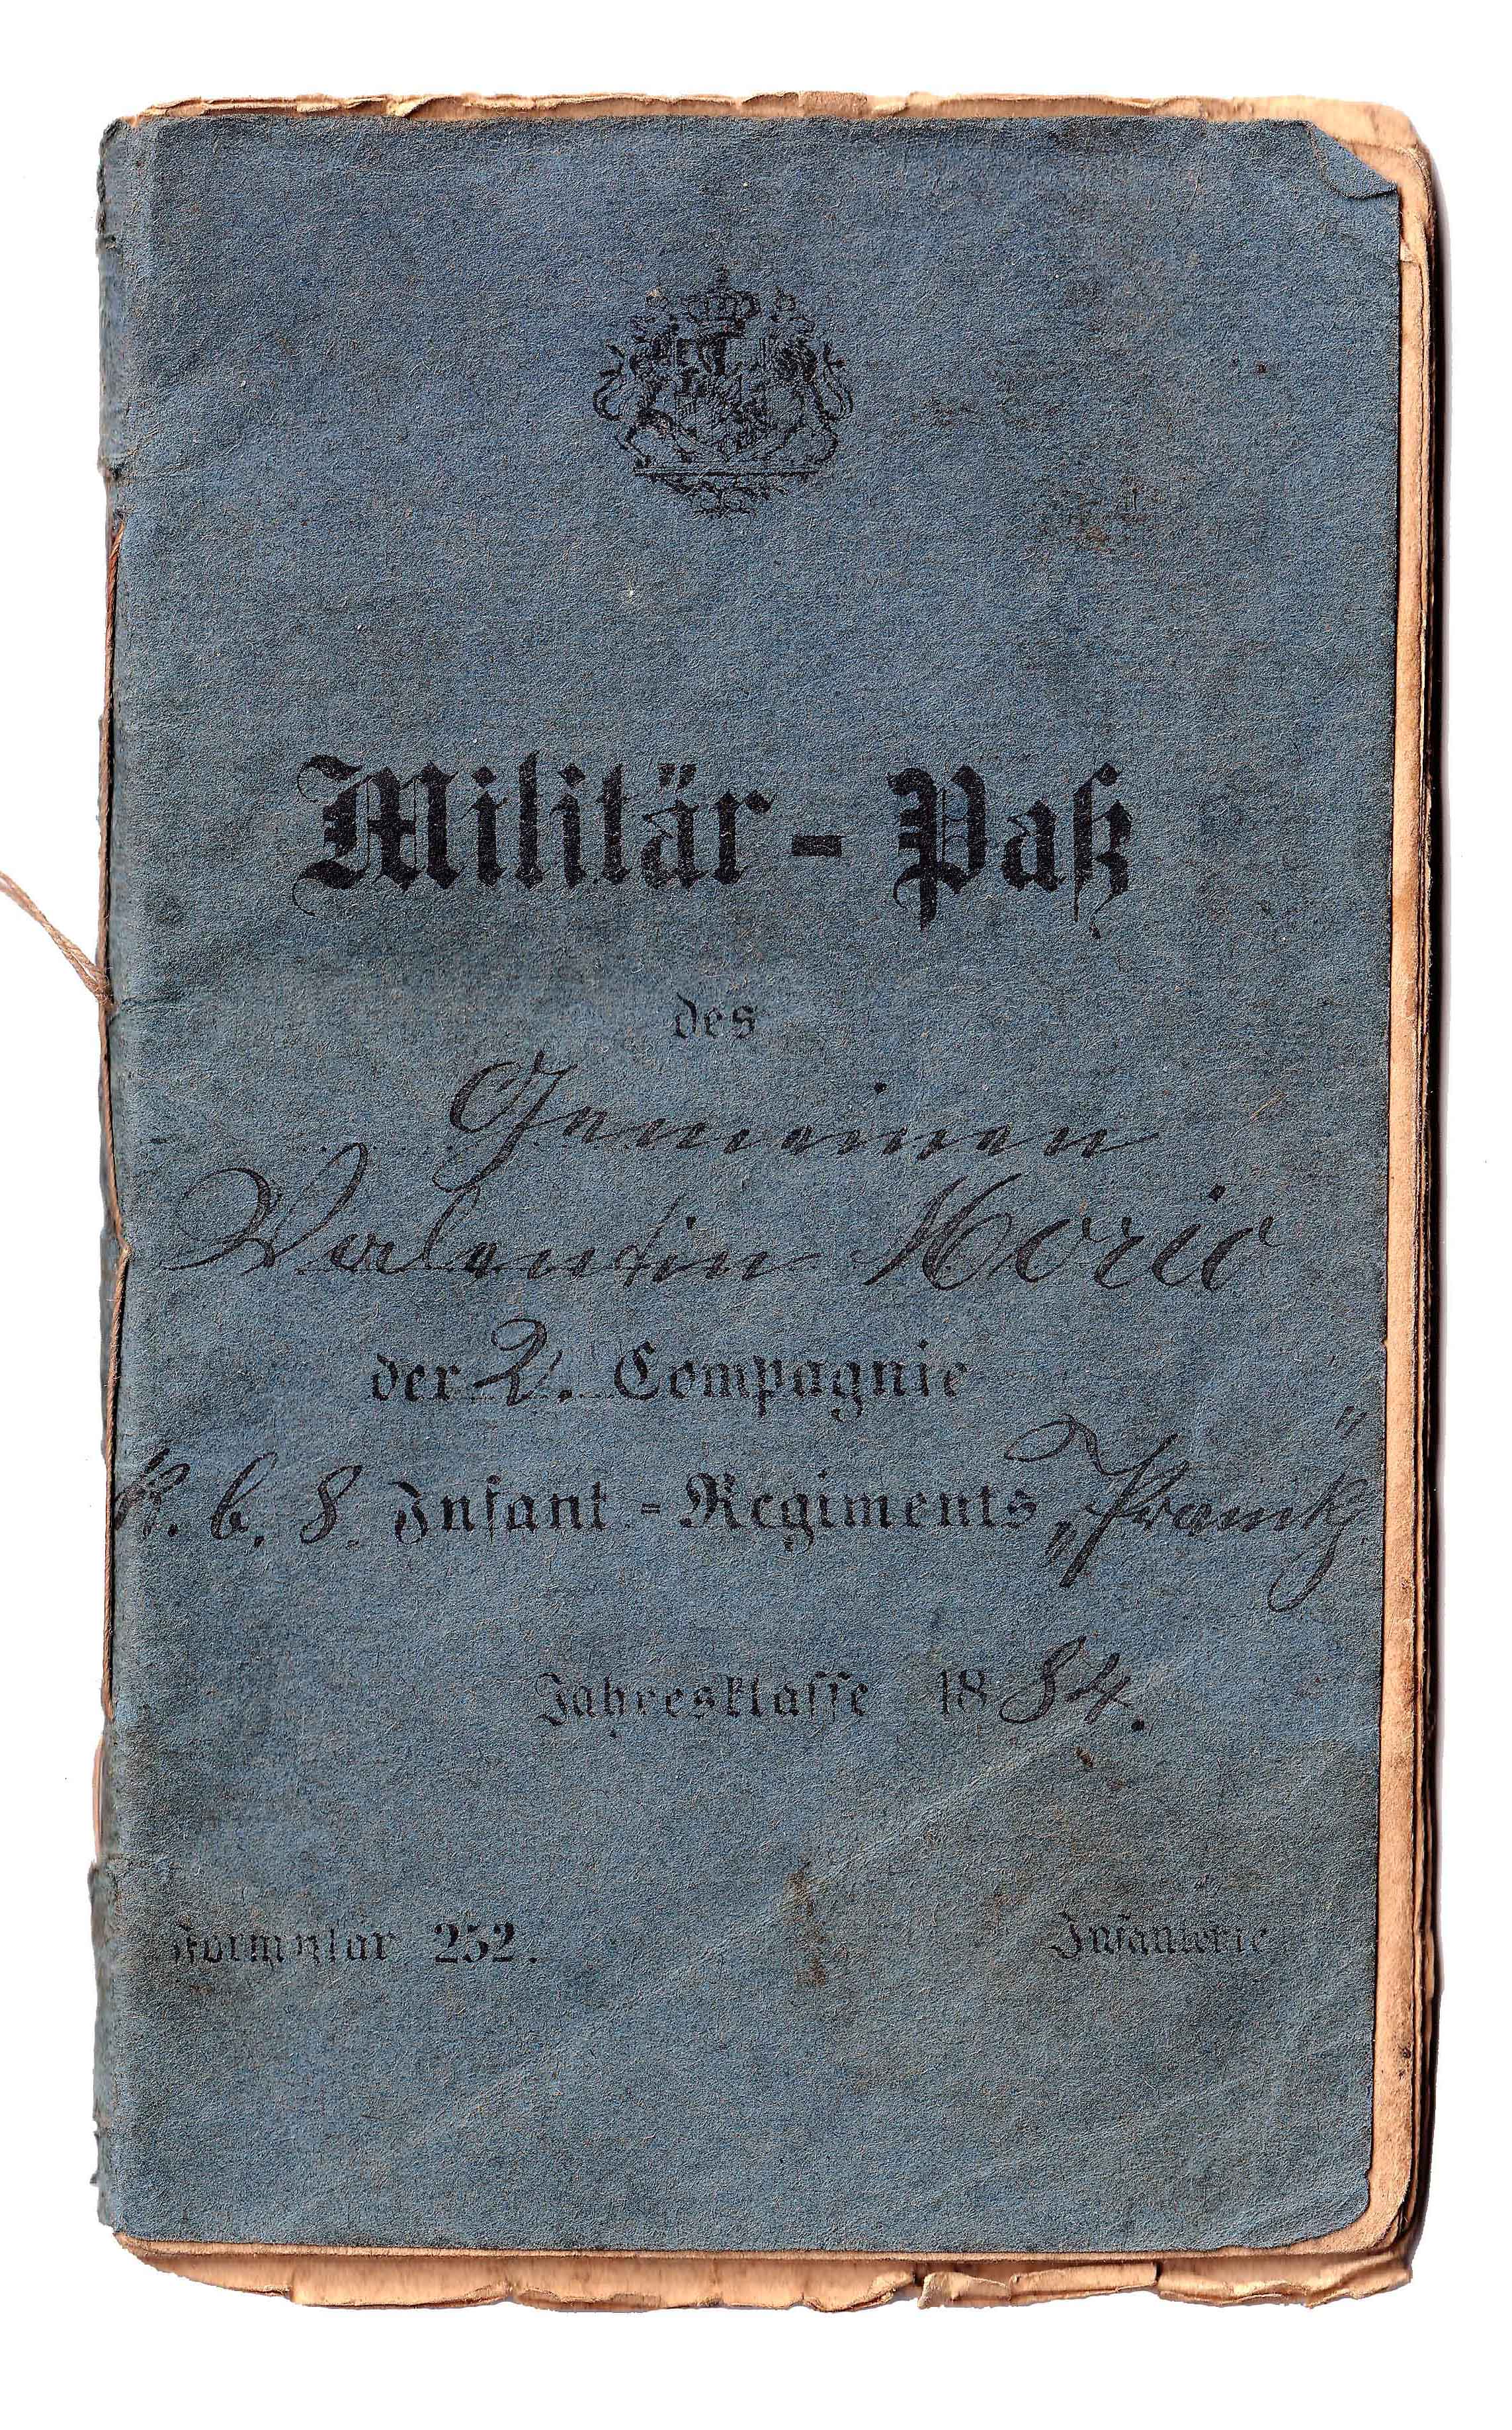 Militär-Paß
des
Gemeinen
Valentin Moric
der 2. Compagnie
K. b. 8. Infant.-Regiments „Pranckh"
Jahresklasse 1884.
Formular 252.
Infanterie